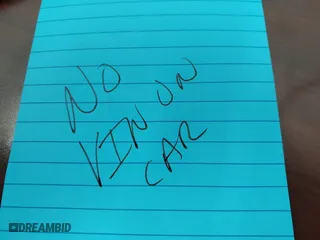 NO
VIN ON
CAR
DREAMBID